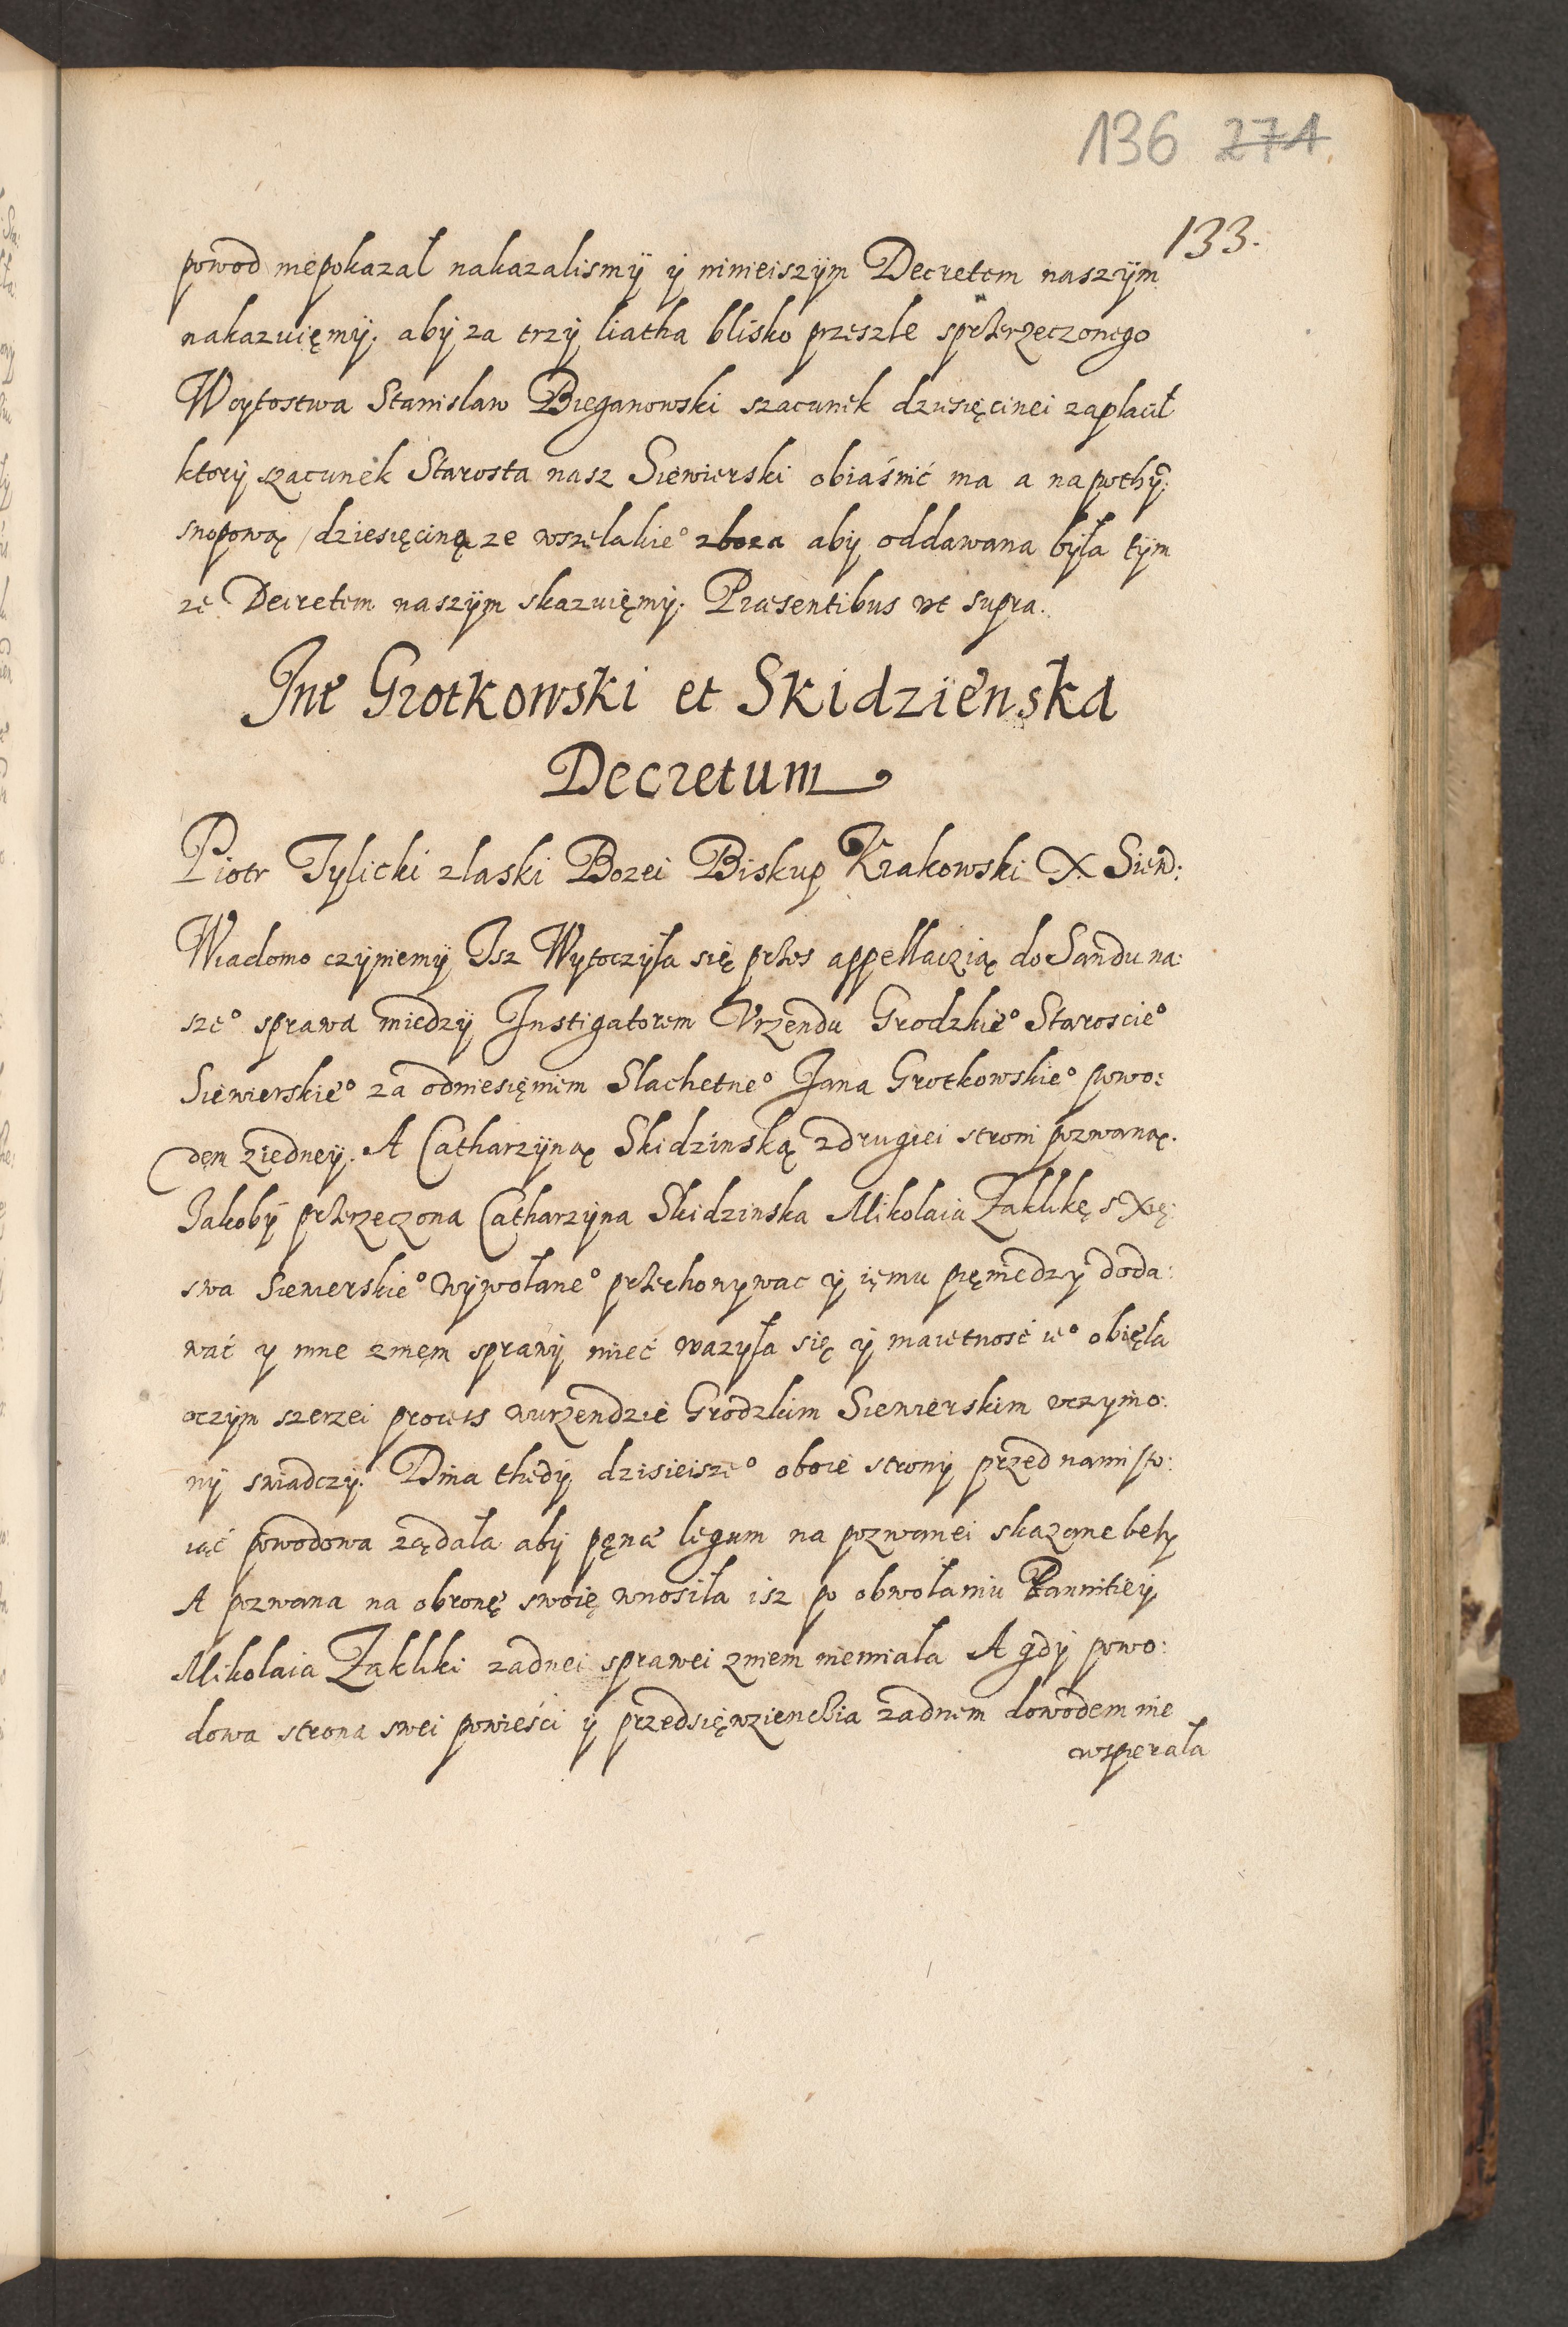 136 274
133.
powod niepokazał nakazalismÿ ÿ ninieiszÿm Decretem naszÿm
nakazuięmÿ. abÿ za trzÿ liatha blisko przeszłe sprzerzeczonego
Woytostwa Stanisław Bieganowski szacunek dziesięcinei zapłacił
ktorÿ szacunek Starosta nasz Siewierski obiaśnić ma a napothÿ:
snopową dziesięciną ze wszelakie° zboza abÿ oddawana bÿła tÿm
ze Decretem naszÿm skazuięmÿ. Præsentibus ut supra.
Int Grotkowski et Skidzienska
Decretum
Piotr Tylicki złaski Bozei Biskup Krakowski X Siew:
Wiadomo czÿniemÿ Isz Wytoczÿła się przes appellacizią do Sandu na:
sze° sprawa miedzÿ Instigatorem Vrzendu Grodzkie° Staroscie°
Siewierskie° za odniesięniem Slachetne° Jana Grotkowskie° powo:
dem ziedneÿ. A Catharzÿną Skidzinską zdrugiei stroni pozwaną.
Jakobÿ przerzeczona Catharzÿna Skidzinska Mikolaia Zaklikę s Xię:
swa Siewierskie° wÿwołane° przechonywac ÿ ięmu pięniedzÿ doda:
wać y inne znięm sprawÿ mieć wazÿła się ÿ maietność ie° obięła
oczÿm szerzei process wurzendzie Grodzkim Siewierskim uczynio:
nÿ swiadczÿ. Dnia thedÿ dzisieisze° oboie stronÿ przed nami sto:
iąć powodowa ządała abÿ pęnæ legum na pozwanei skazane belÿ
A pozwana na obronę swoię wnosiła isz po obwołaniu Banniticÿ
Mikolaia Zakliki zadnei sprawei zniem niemiała A gdÿ powo:
dowa strona swei powieści ÿ przedsięwzienchia zadnem dowodem nie
wspierała